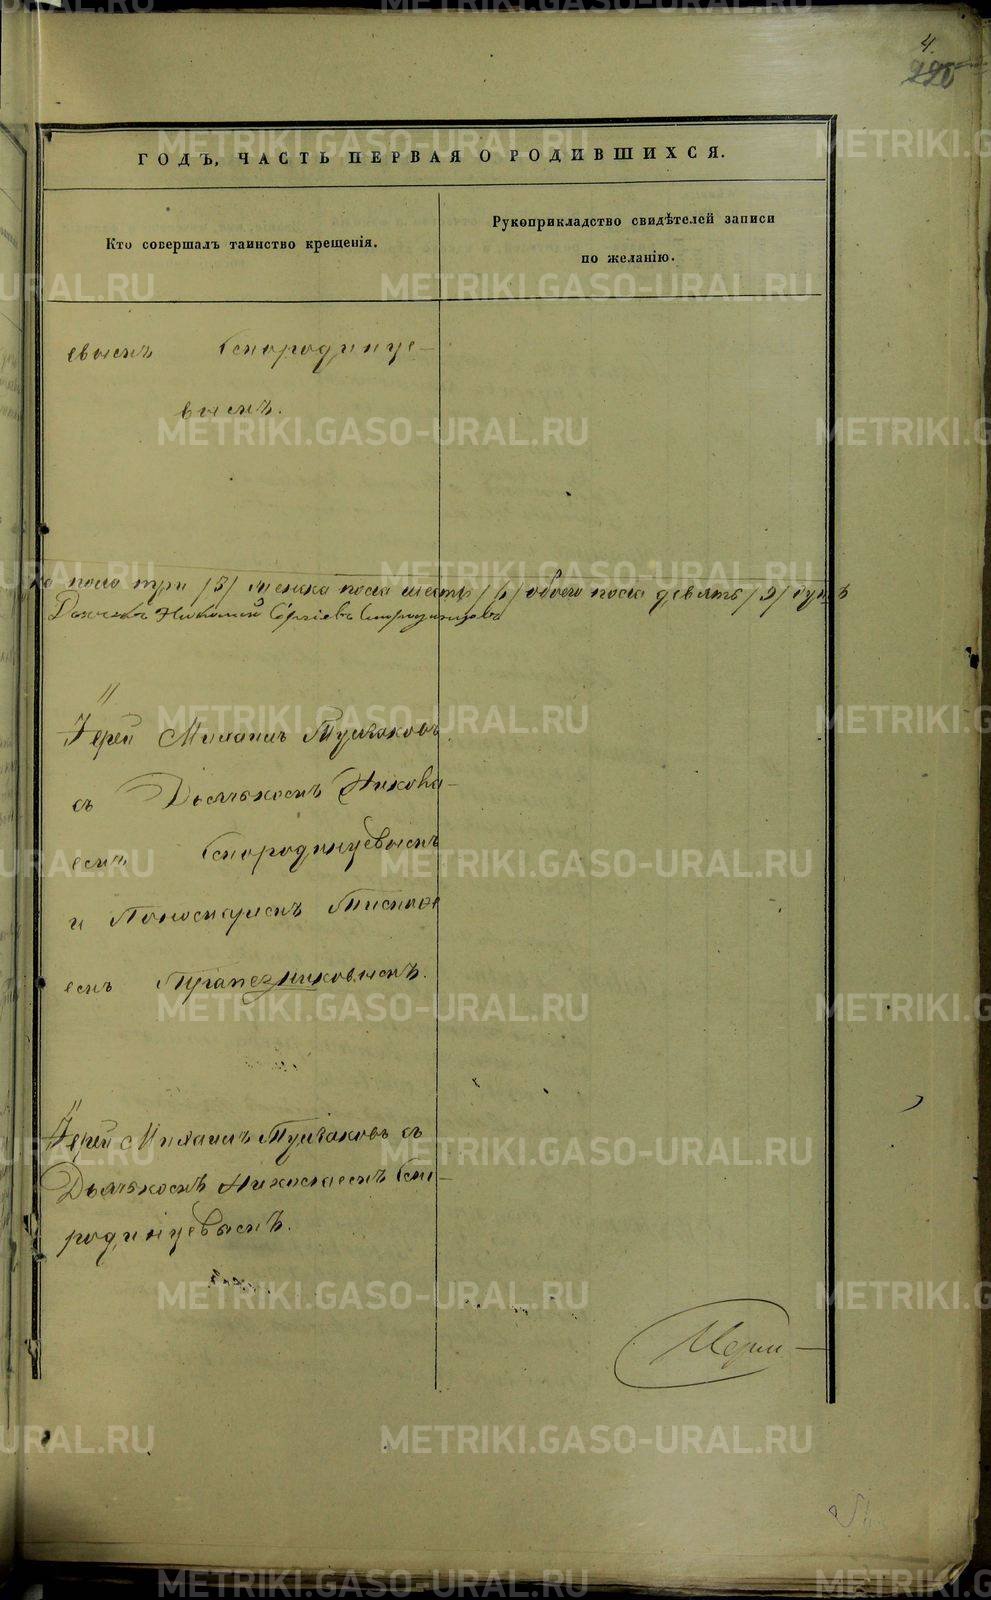 4.
220
ГОДЪ, ЧАСТЬ ПЕРВАЯ О РОДИВШИХСЯ.
Кто совершалъ таинство крещенія.
Рукоприкладство свидѣтелей записи
по желанію.
евымъ Смородинце-
вымъ.
пола три /3/ женска пола шесть /6/ обоего пола девять /9/ душъ
Дьячекъ Николай Сергіевъ Смородинцевъ
Іерей Михаилъ Тушаковъ
съ Дьячькомъ Никола-
емъ Смородинцевымъ
и Пономаремъ
емъ Трапезниковымъ.
Іерей Михаилъ Тушаковъ съ
Дьячькомъ Николаемъ Смо-
родинцевымъ.
METRIKI.GASO-URAL.RU